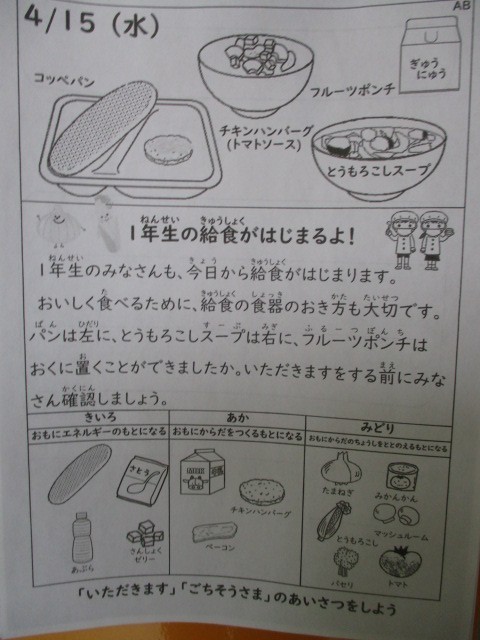 AB
4/15（水）
コッペパン
フルーツポンチ
ぎゅう
にゅう
チキンハンバーグ
(トマトソース)
とうもろこしスープ
1年生の給食がはじまるよ！
1年生のみなさんも、今日から給食がはじまります。
おいしく食べるために、給食の食器のおき方も大切です。
パンは左に、とうもろこしスープは右に、フルーツポンチは
おくに置くことができましたか。いただきますをする前にみな
さん確認しましょう。
きいろ
おもにエネルギーのもとになる
さとう
あぶら
さんしょく
ゼリー
あか
おもにからだをつくるもとになる
チキンハンバーグ
ベーコン
みどり
おもにからだのちょうしをととのえるもとになる
たまねぎ
みかんかん
とうもろこし
マッシュルーム
パセリ
トマト
「いただきます」「ごちそうさま」のあいさつをしよう